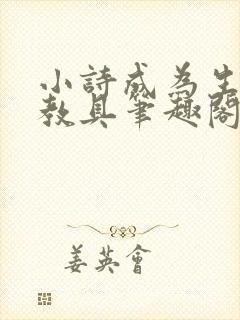 小詩成為生
教具筆趣閣
姜英會